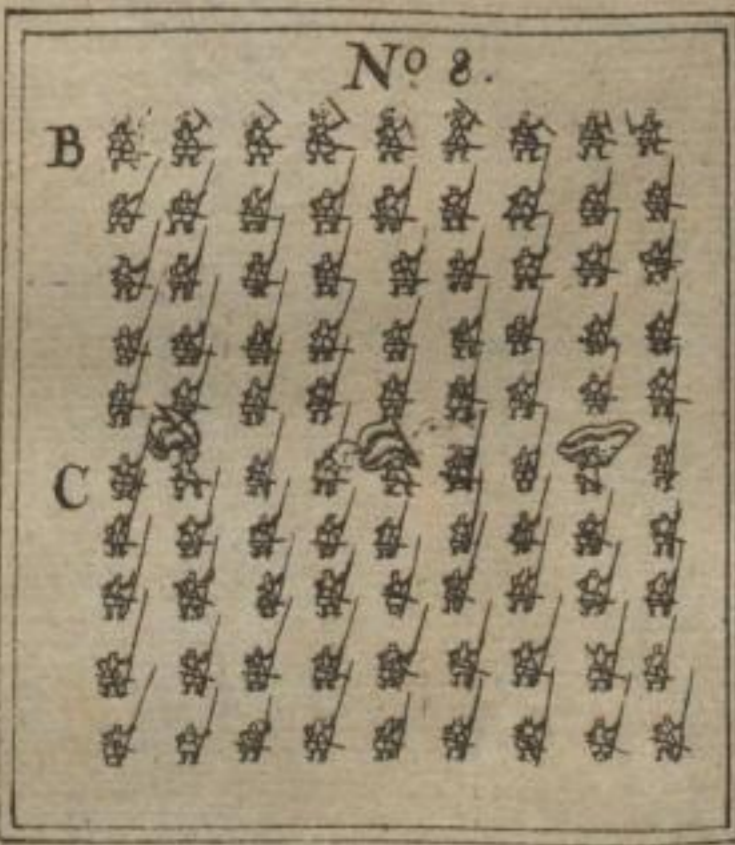 Nº 8.
B
C